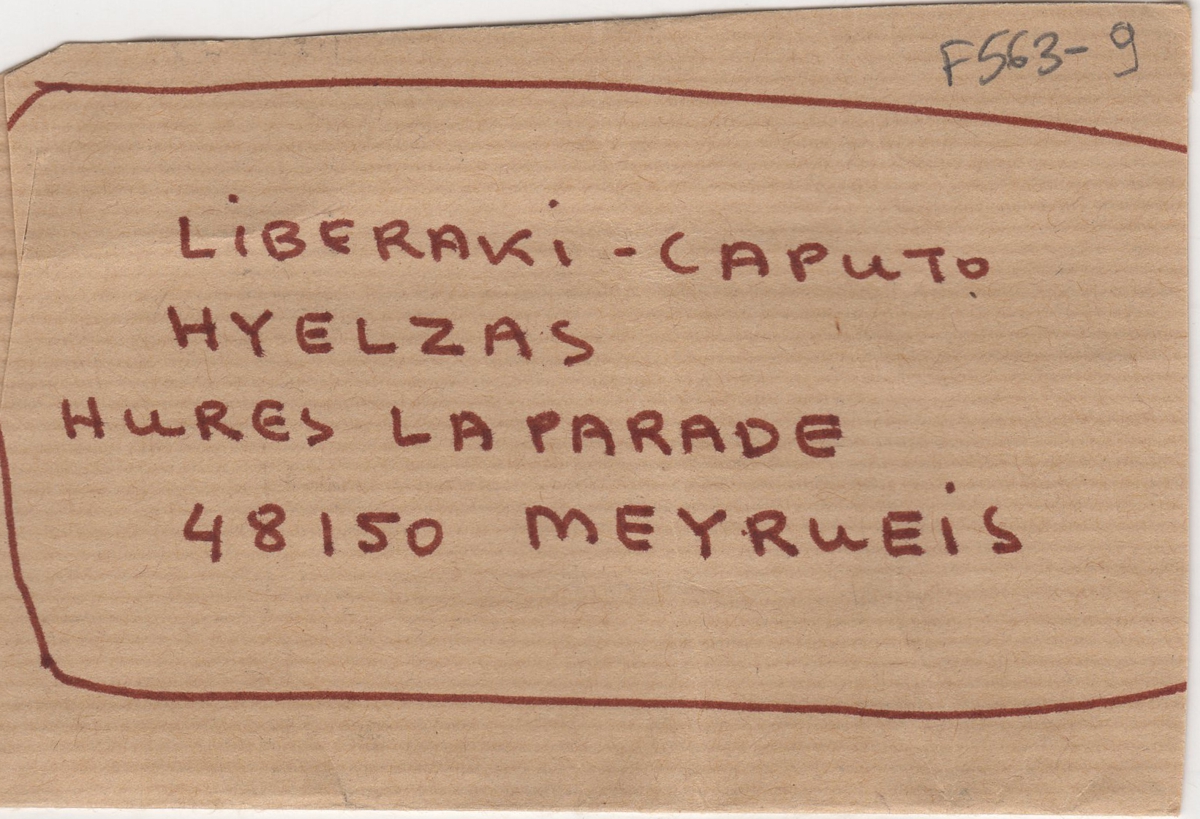 F563-9
LiBERAKi-CAPUTO
HYELZAS
HURES LA PARADE
48150 MEYRUEiS